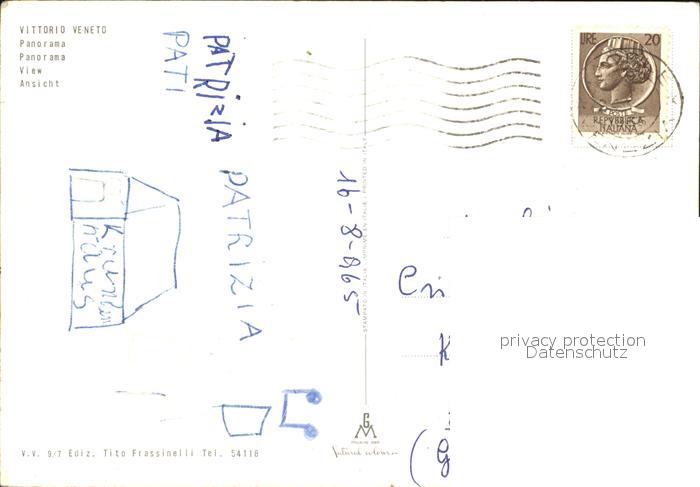 VITTORIO VENETO
Panorama
Panorama
View
Ansicht
PATRIZIA
PATI
PATRIZIA
Kranken
haus
16-8-1965
STAMPATO IN ITALIA - IMPRIMÉ EN ITALIE - PRINTED IN ITALY
LIRE 20
POSTE
REPVBBLICA
ITALIANA
Cri
K
(G
privacy protection
Datenschutz
GM
V.V. 9/7 Ediz. Tito Frassinelli Tel. 54118